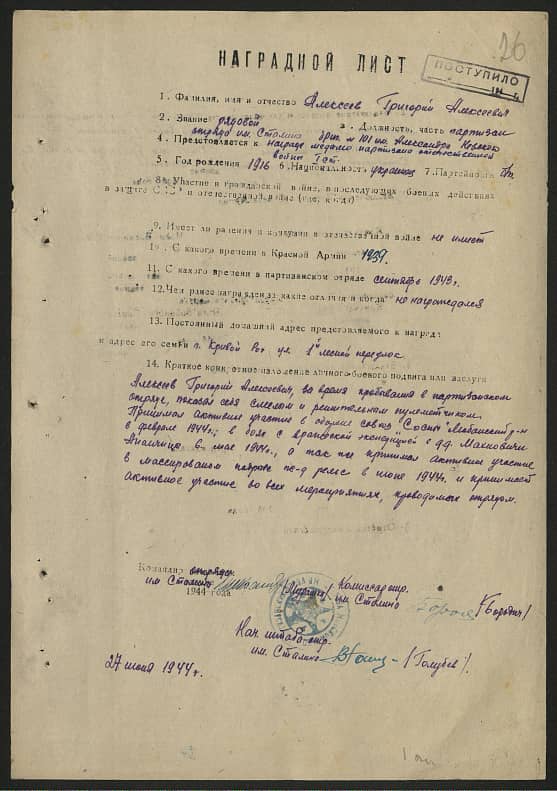 26
НАГРАДНОЙ ЛИСТ
ПОСТУПИЛО
1. Фамилия, имя и отчество Алексеев Григорий Алексеевич
2. Звание рядовой 3. Должность, часть партизан
отряда им. Сталина бриг. № 101 им. Александра
4. Представляется к награде медалью партизану отечественной
войны I ст.
5. Год рождения 1916 6. Национальность украинец 7. Партейность б/п
8. Участие в гражданской войне, в последующих боевых действиях
в защите СССР и отечественной войне (где, когда)
9. Имеет ли ранения и контузии в отечественной войне не имеет
10. С какого времени в Красной Армии 1939.
11. С какого времени в партизанском отряде сентябрь 1943 г.
12. Чем ранее награжден за какие отличия и когда не награждался
13. Постоянный домашний адрес представляемого к награде
и адрес его семьи г. Кривой Рог ул. 1й
14. Краткое конкретное изложение личного боевого подвига или заслуги
Алексеев Григорий Алексеевич, во время пребывания в партизанском
отряде, показал себя смелым и решительным пулеметчиком.
Принимал активное участие в обороне "Сосны" Любанский р-н
в феврале 1944 г.; в боях с вражеской экспедицией в дд. Маковичи
в мае 1944 г., а так же принимал активное участие
в массированом подрыве ж-д рельс в июне 1944 г. и принимает
активное участие во всех мероприятиях, проводимых отрядом.
Командир отряда
им. Сталина
Комиссар отр.
им. Сталина /Борович/
1944 года
Нач. штаба отр.
им. Сталина /Голубев/.
27 июня 1944 г.